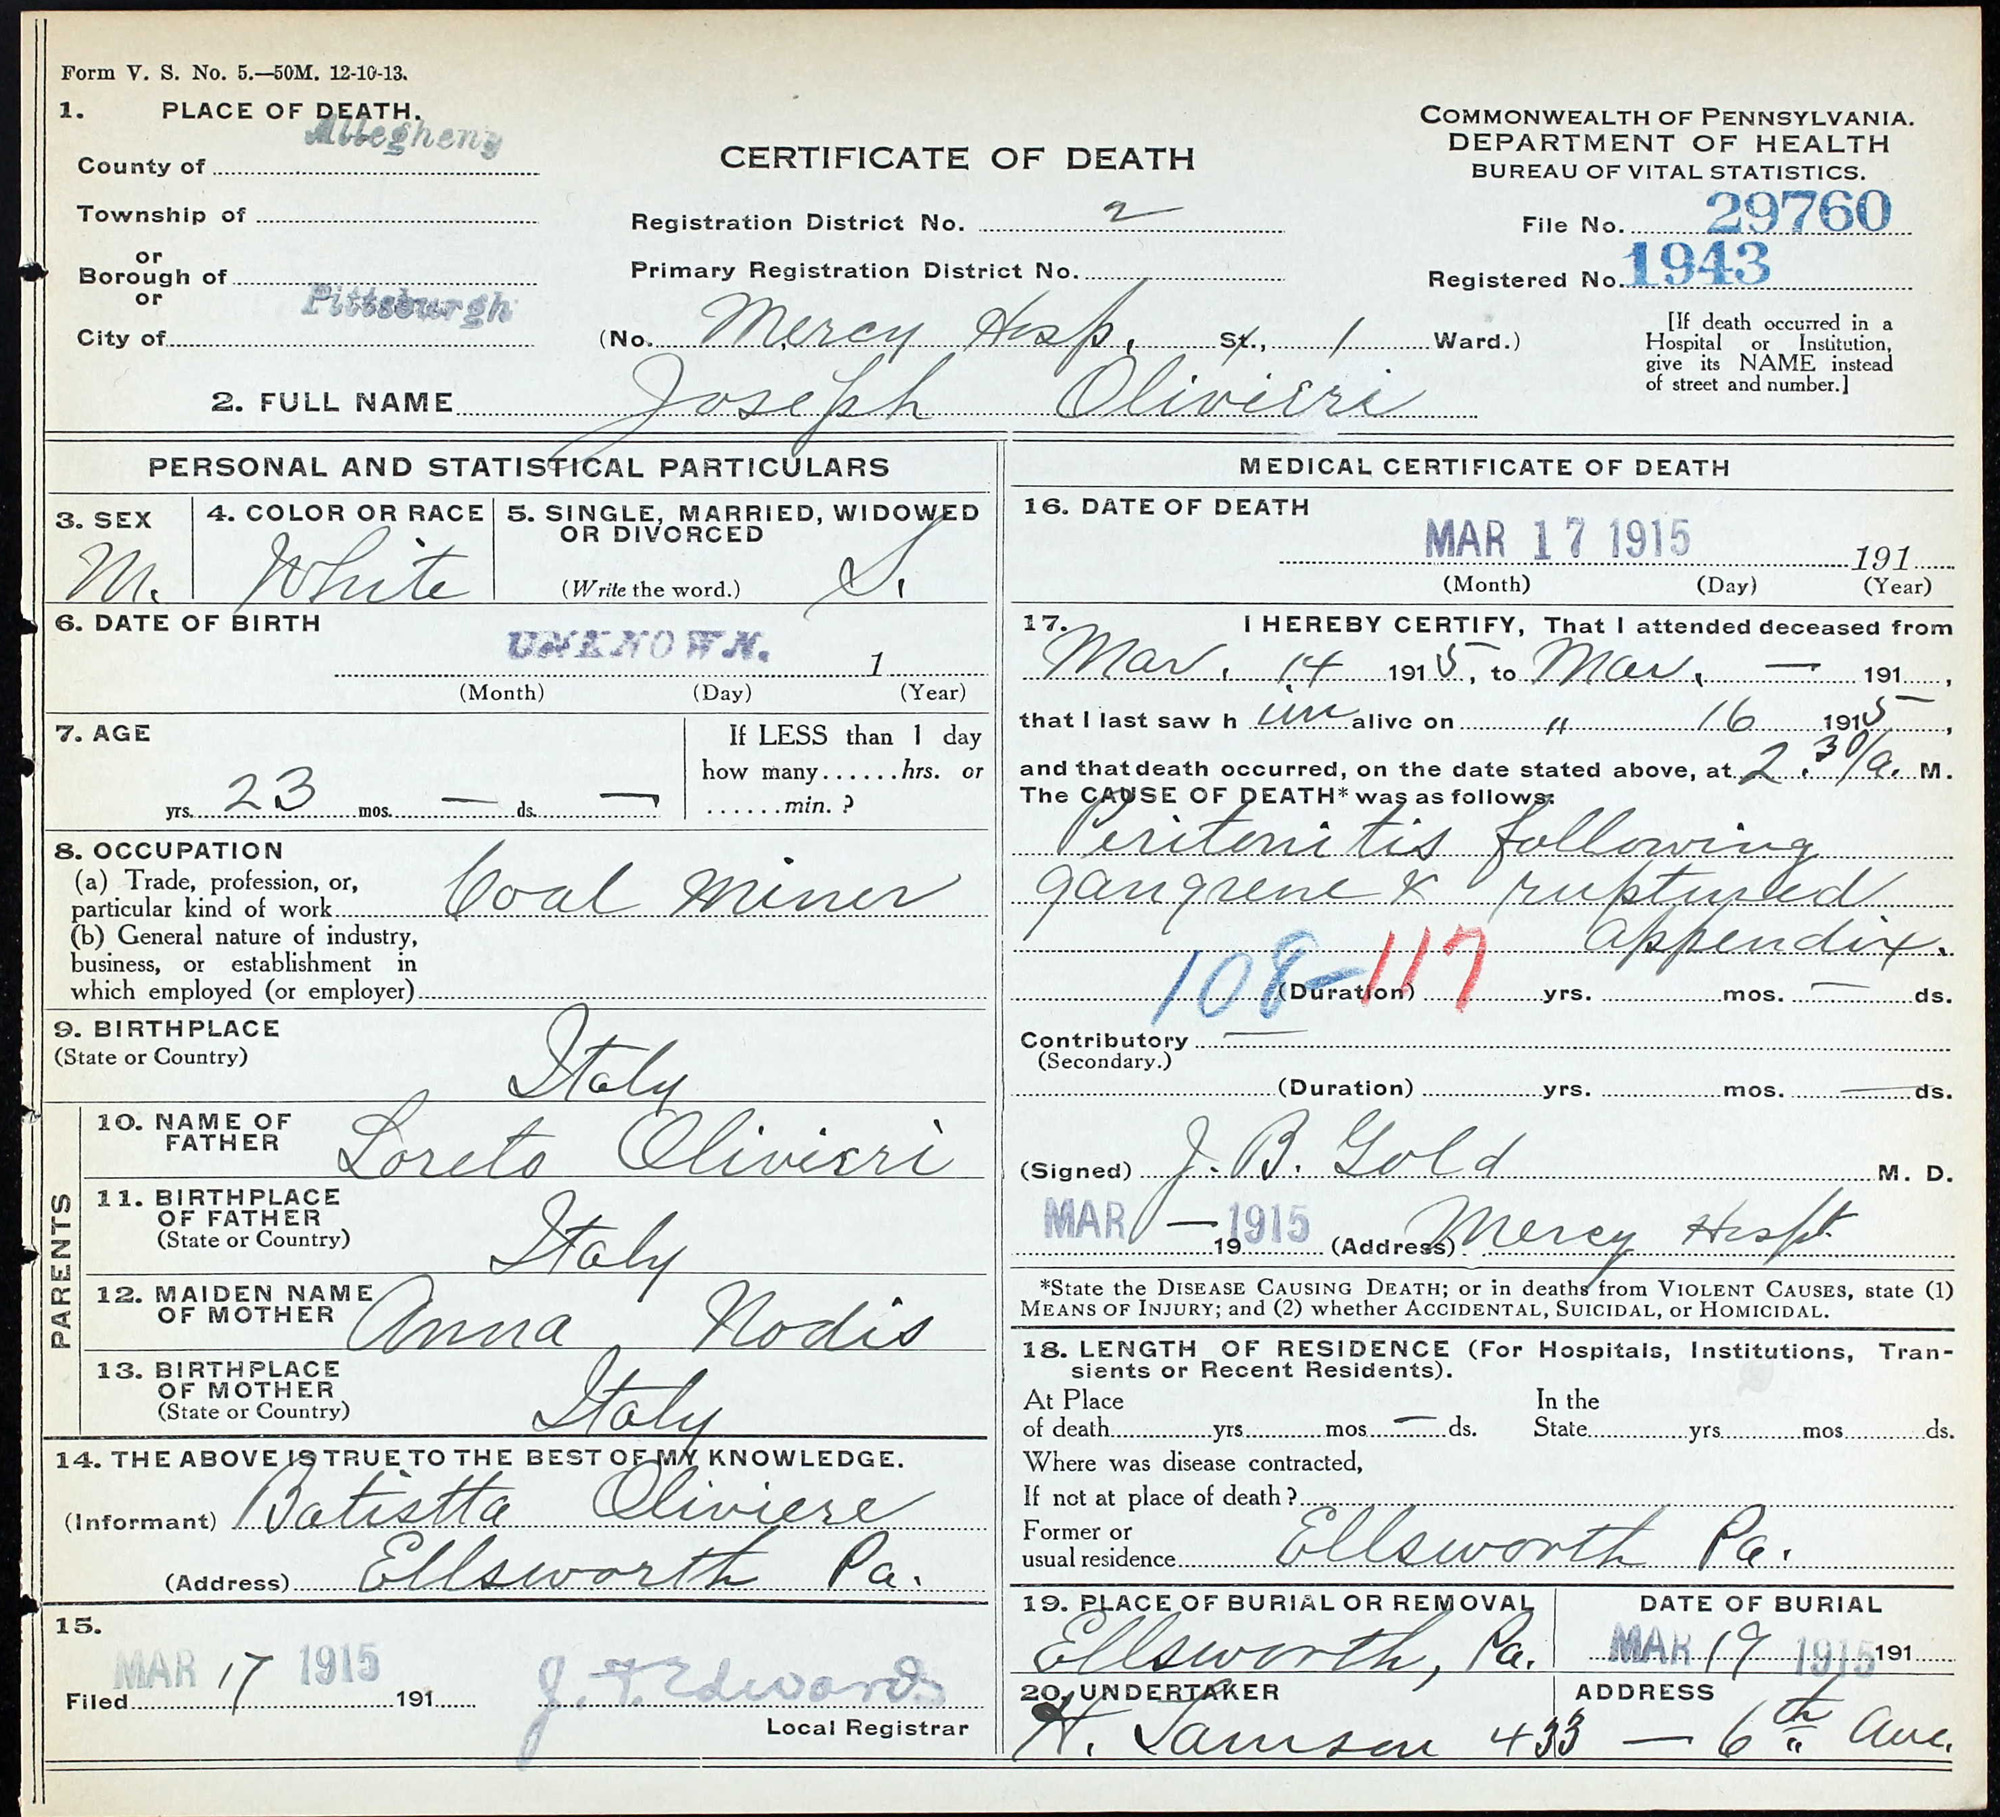 Form V. S. No. 5.—50M. 12-10-13.
1. PLACE OF DEATH.
County of Allegheny
Township of
or
Borough of
or
City of Pittsburgh
CERTIFICATE OF DEATH
Registration District No. 2
Primary Registration District No.
(No. Mercy Hosp, St., 1 Ward.)
COMMONWEALTH OF PENNSYLVANIA.
DEPARTMENT OF HEALTH
BUREAU OF VITAL STATISTICS.
File No. 29760
Registered No. 1943
[If death occurred in a
Hospital or Institution,
give its NAME instead
of street and number.]
2. FULL NAME Joseph Olivieri
PERSONAL AND STATISTICAL PARTICULARS
3. SEX
M.
4. COLOR OR RACE
White
5. SINGLE, MARRIED, WIDOWED
OR DIVORCED
(Write the word.) S.
6. DATE OF BIRTH
UNKNOWN. 1
(Month) (Day) (Year)
7. AGE
yrs. 23 mos. — ds. —
If LESS than 1 day
how many......hrs. or
......min. ?
8. OCCUPATION
(a) Trade, profession, or,
particular kind of work Coal Miner
(b) General nature of industry,
business, or establishment in
which employed (or employer)
9. BIRTHPLACE
(State or Country)
Italy
PARENTS
10. NAME OF
FATHER Loreto Olivieri
11. BIRTHPLACE
OF FATHER
(State or Country) Italy
12. MAIDEN NAME
OF MOTHER Anna Nodis
13. BIRTHPLACE
OF MOTHER
(State or Country) Italy
14. THE ABOVE IS TRUE TO THE BEST OF MY KNOWLEDGE.
(Informant) Batistta Oliviere
(Address) Ellsworth Pa.
15.
Filed MAR 17 1915 191
J. F. Edwards
Local Registrar
MEDICAL CERTIFICATE OF DEATH
16. DATE OF DEATH
MAR 17 1915 191
(Month) (Day) (Year)
17. I HEREBY CERTIFY, That I attended deceased from
Mar. 14 1915, to Mar. — 191 ,
that I last saw h im alive on " 16 1915,
and that death occurred, on the date stated above, at 2.30/a. M.
The CAUSE OF DEATH* was as follows:
Peritonitis following
gangrene & ruptured
appendix.
108-117
(Duration) yrs. mos. — ds.
Contributory —
(Secondary.)
(Duration) yrs. mos. — ds.
(Signed) J. B. Gold M. D.
MAR — 1915 19 (Address) Mercy Hospt.
*State the DISEASE CAUSING DEATH; or in deaths from VIOLENT CAUSES, state (1)
MEANS OF INJURY; and (2) whether ACCIDENTAL, SUICIDAL, or HOMICIDAL.
18. LENGTH OF RESIDENCE (For Hospitals, Institutions, Tran-
sients or Recent Residents).
At Place In the
of death yrs mos — ds. State yrs mos ds.
Where was disease contracted,
If not at place of death?
Former or
usual residence Ellsworth Pa.
19. PLACE OF BURIAL OR REMOVAL
Ellsworth, Pa.
DATE OF BURIAL
MAR 19 1915 191
20. UNDERTAKER ADDRESS
H. Samson 433 — 6th Ave.